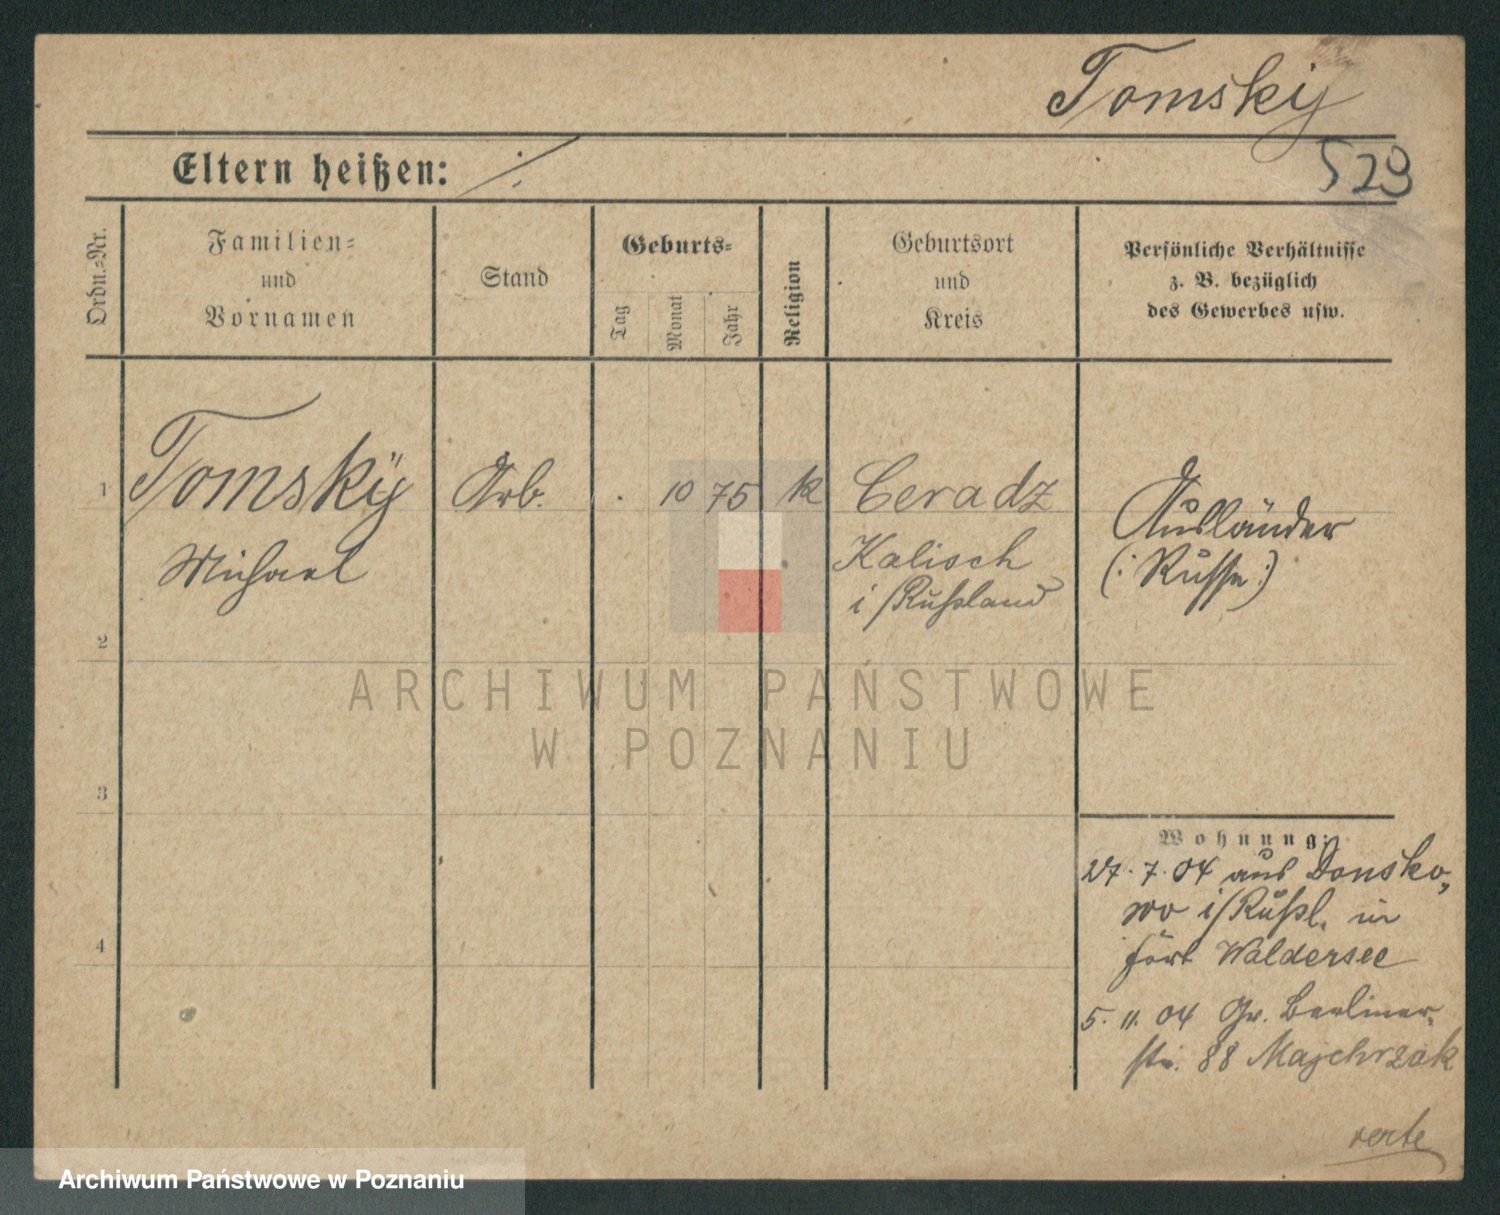 Tomskij
529
Eltern heißen: ./.
Ordn.-Nr.
Familien-
und
Vornamen
Stand
Geburts-
Tag
Monat
Jahr
Religion
Geburtsort
und
Kreis
Persönliche Verhältnisse
z. B. bezüglich
des Gewerbes usw.
1 Tomskÿ Arb. . 10 75 k Ceradz
Michael
Kalisch
i/Rußland
Ausländer
(: Russe :)
2
ARCHIWUM PAŃSTWOWE
W POZNANIU
3
4
Wohnung:
27. 7. 04 aus Donsko-
wo i/Rußl. in
fort Waldersee
5. 11. 04 Gr. Berliner-
str. 88 Majchrzak
verte
Archiwum Państwowe w Poznaniu